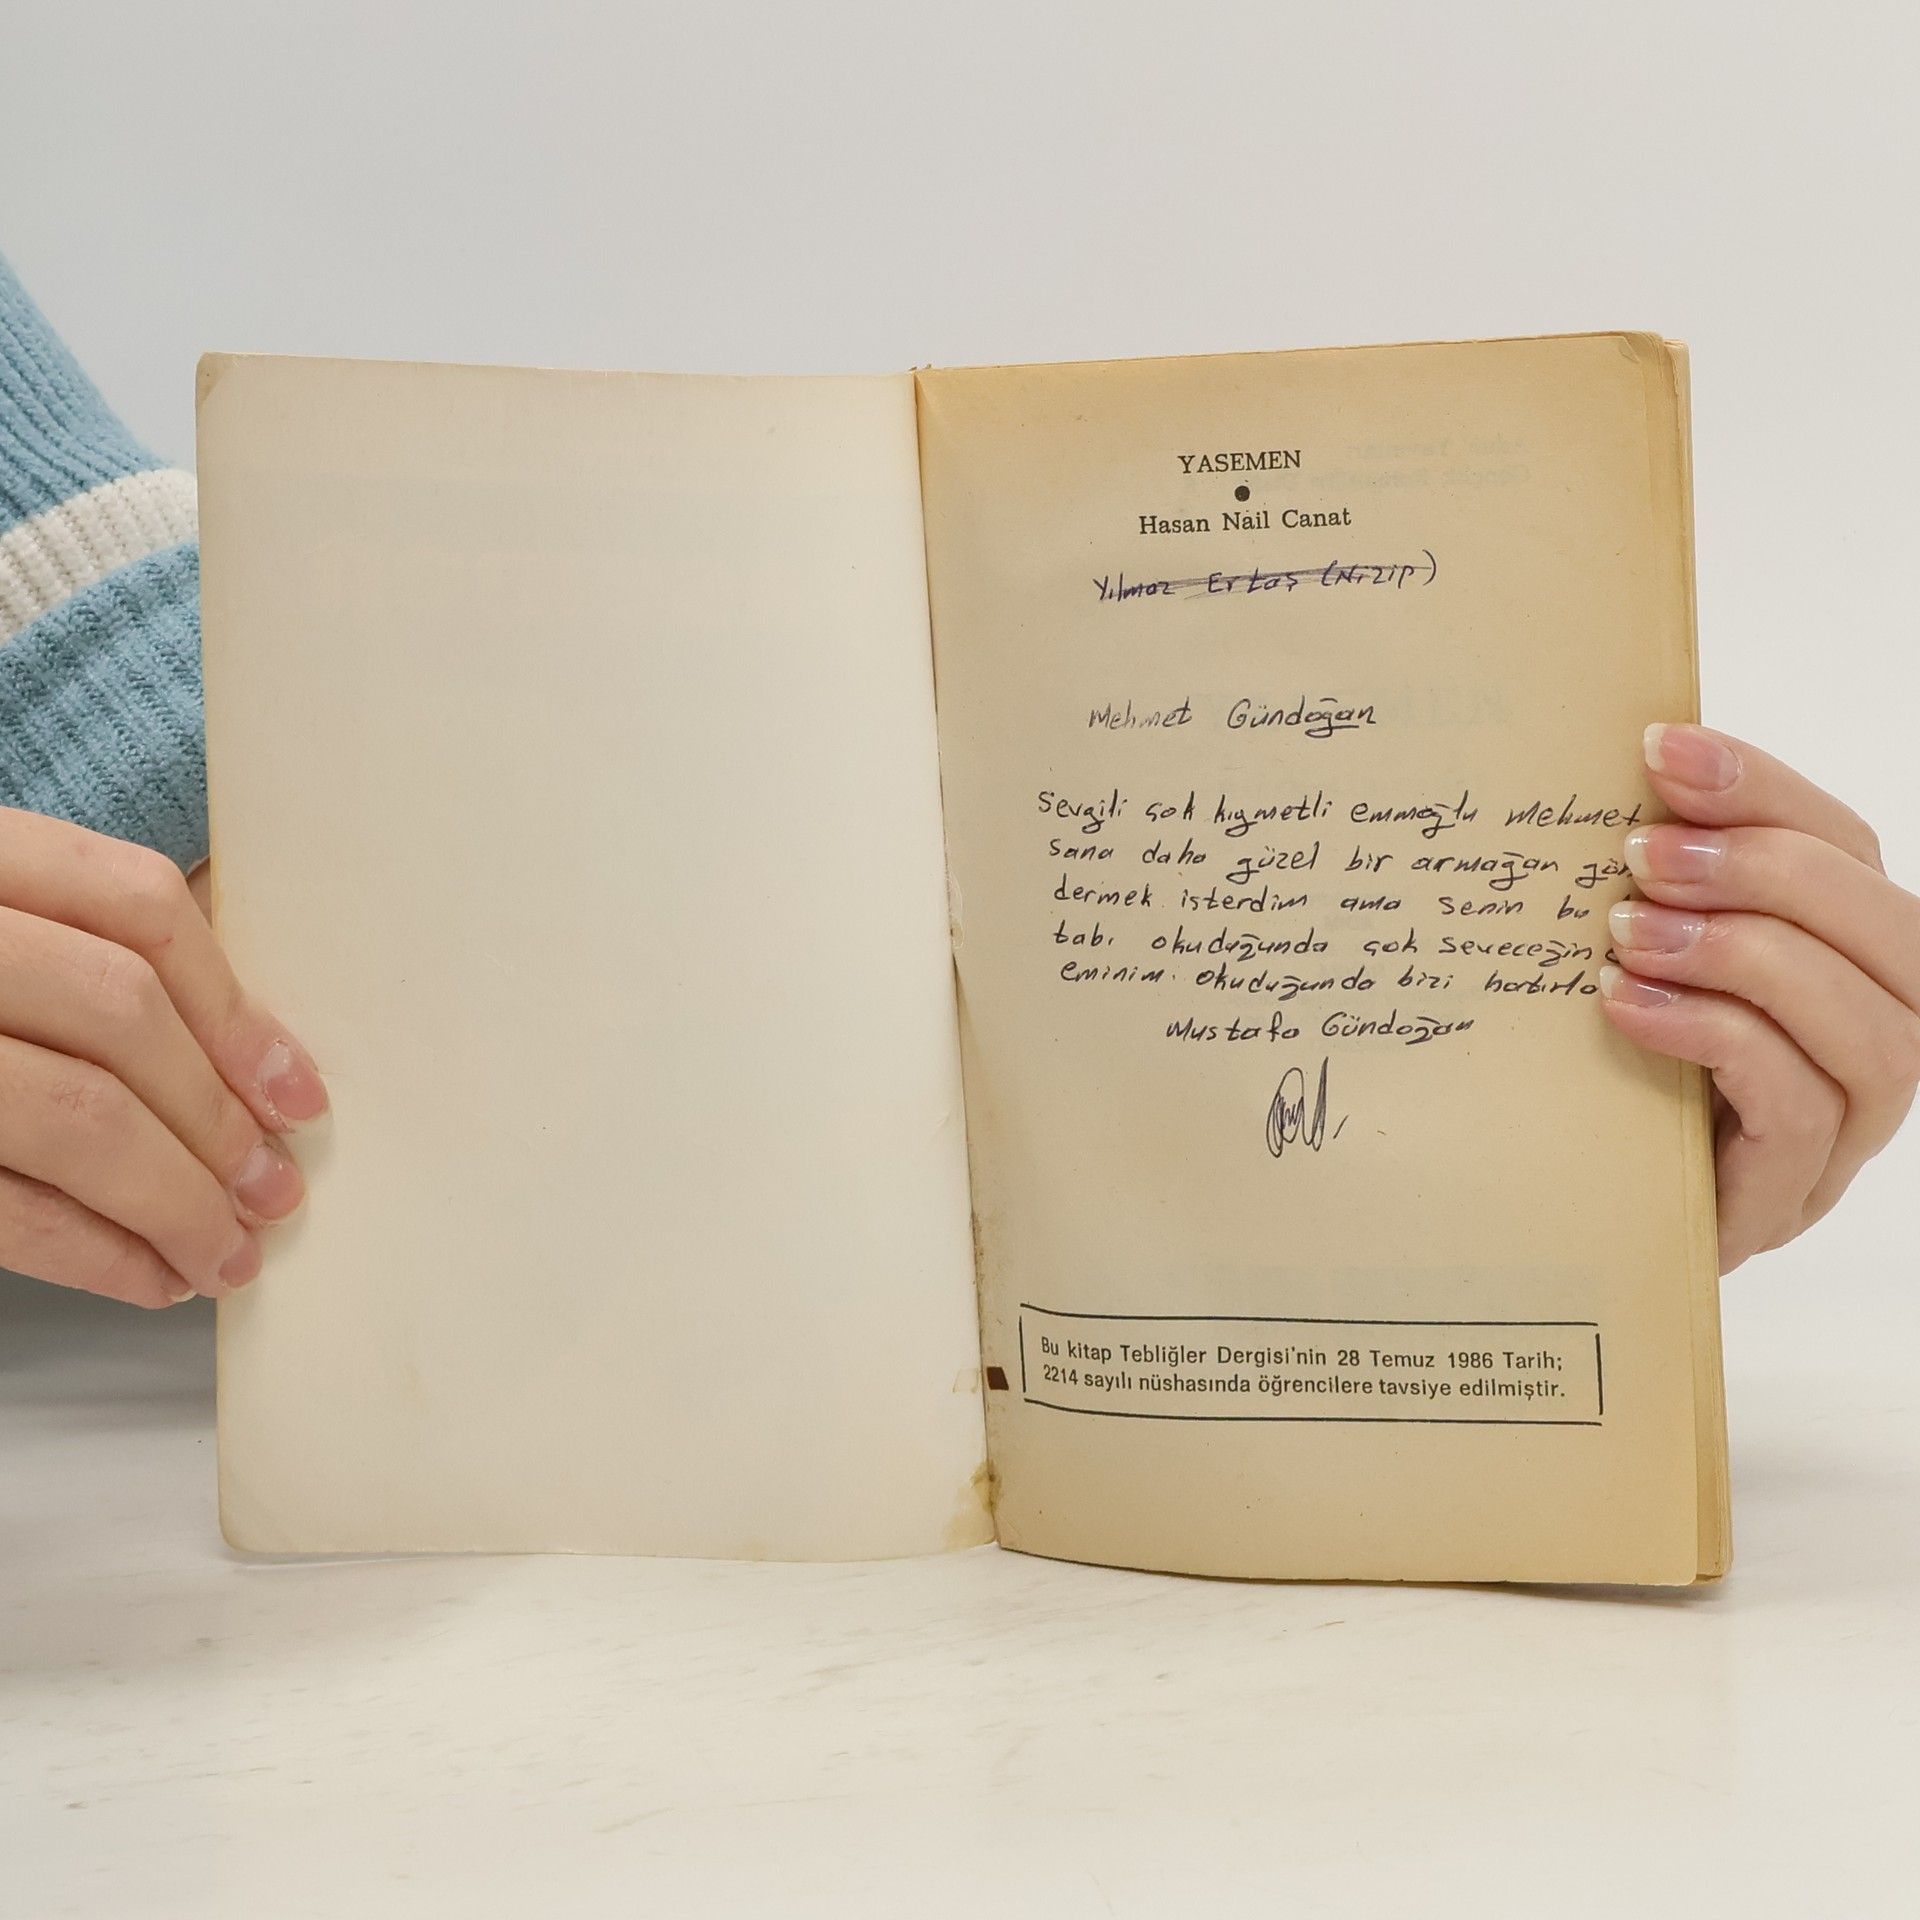 YASEMEN
Hasan Nail Canat
Yılmaz Ertaş (Nizip)
Mehmet Gündoğan
Sevgili çok kıymetli emmoğlu Mehmet
Sana daha güzel bir armağan gön
dermek isterdim ama Senin bu
tabı okuduğunda çok seveceğin
eminim. Okuduğunda bizi hatırla
Mustafa Gündoğan
Bu kitap Tebliğler Dergisi'nin 28 Temuz 1986 Tarih;
2214 sayılı nüshasında öğrencilere tavsiye edilmiştir.